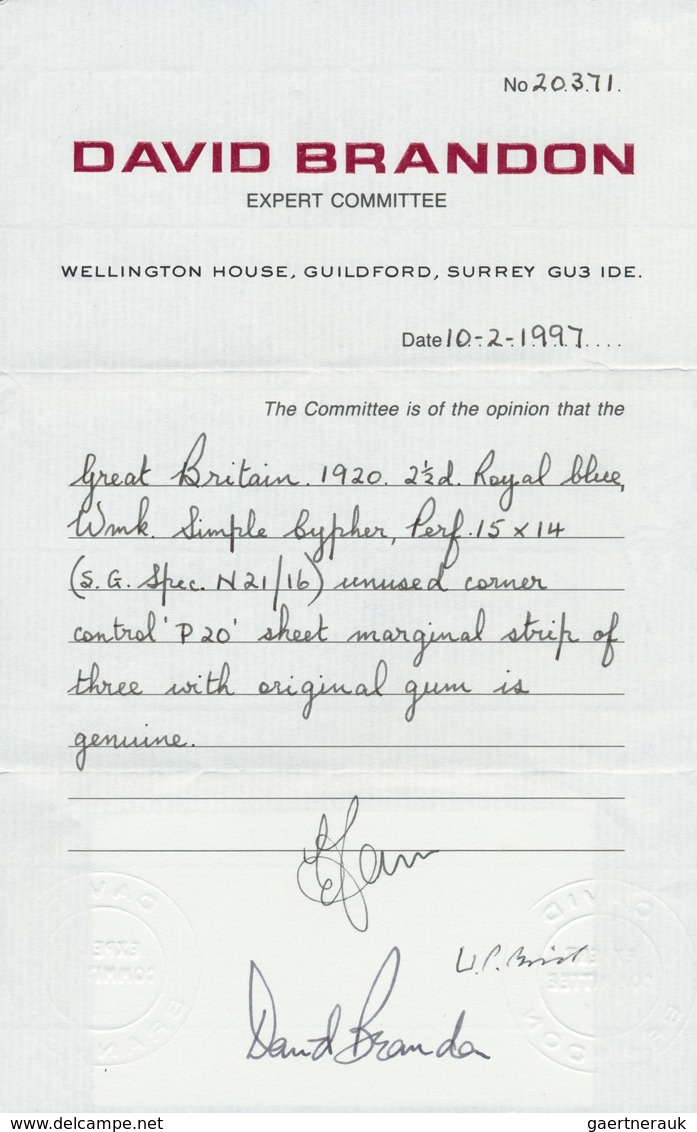 No 20.371.
DAVID BRANDON
EXPERT COMMITTEE
WELLINGTON HOUSE, GUILDFORD, SURREY GU3 1DE.
Date 10-2-1997....
The Committee is of the opinion that the
Great Britain. 1920. 2½d. Royal blue,
Wmk. Simple Cypher, Perf. 15 x 14
(S.G. Spec. N21/16) unused corner
control 'P20' sheet marginal strip of
three with original gum is
genuine.
DAVID BRANDON
EXPERT COMMITTEE
DAVID BRANDON
EXPERT COMMITTEE
David Brandon
www.delcampe.net
gaertnerauk